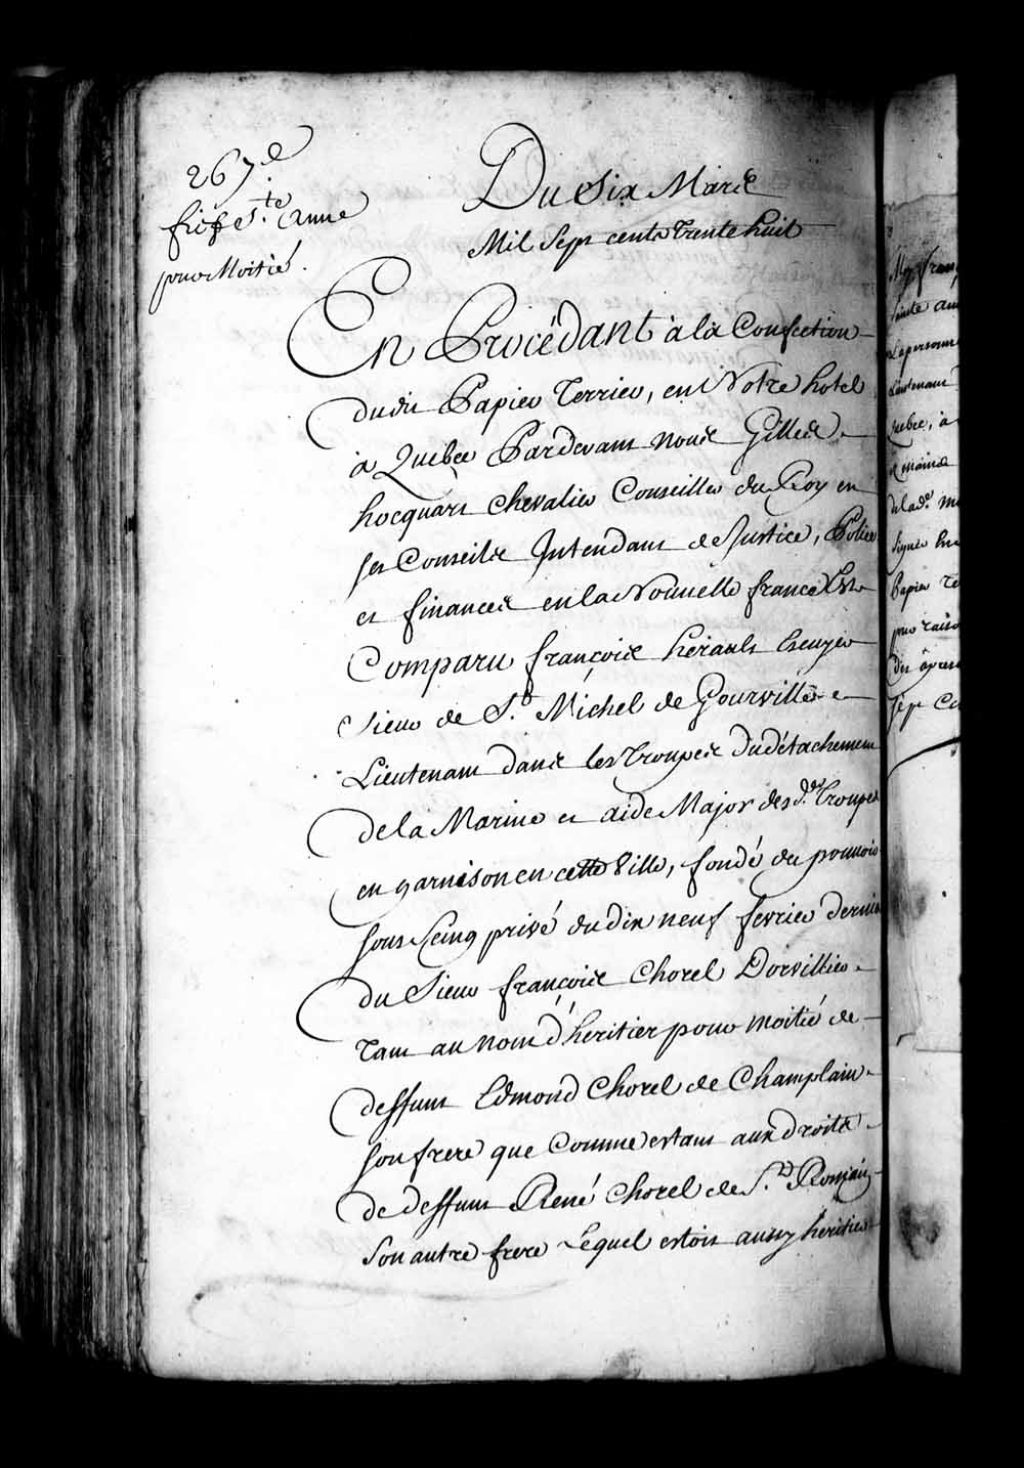 267.e
fief S.te Anne
pour Moitié.
Du Six Mars
Mil Sept cents Trente huit
En Procédant à la Confection
dudit Papier Terrier, en Notre hotel
à Quebec Pardevant nous Gilles
hocquart Chevalier Conseiller du Roy en
ses Conseils Intendant de Justice, Police
et finances en la Nouvelle france Est
Comparu françois hérault Escuyer
Sieur de S.t Michel de Gourville
Lieutenant dans les Troupes du détachement
de la Marine et aide Major des d.es Troupes
en garnison en cette Ville, fondé du pouvoir
sous Seing privé du dix neuf fevrier dernier
du Sieur françois Chorel Dorvillier
Tant au nom d'héritier pour moitié de
deffunt Edmond Chorel de Champlain
son frere que Comme estant aux droits
de deffunt René Chorel de S.t Romain
Son autre frere Lequel estoit aussy heritier
Sainte
La personne
Lieutenant
Quebec, à
de lad.e
Papier